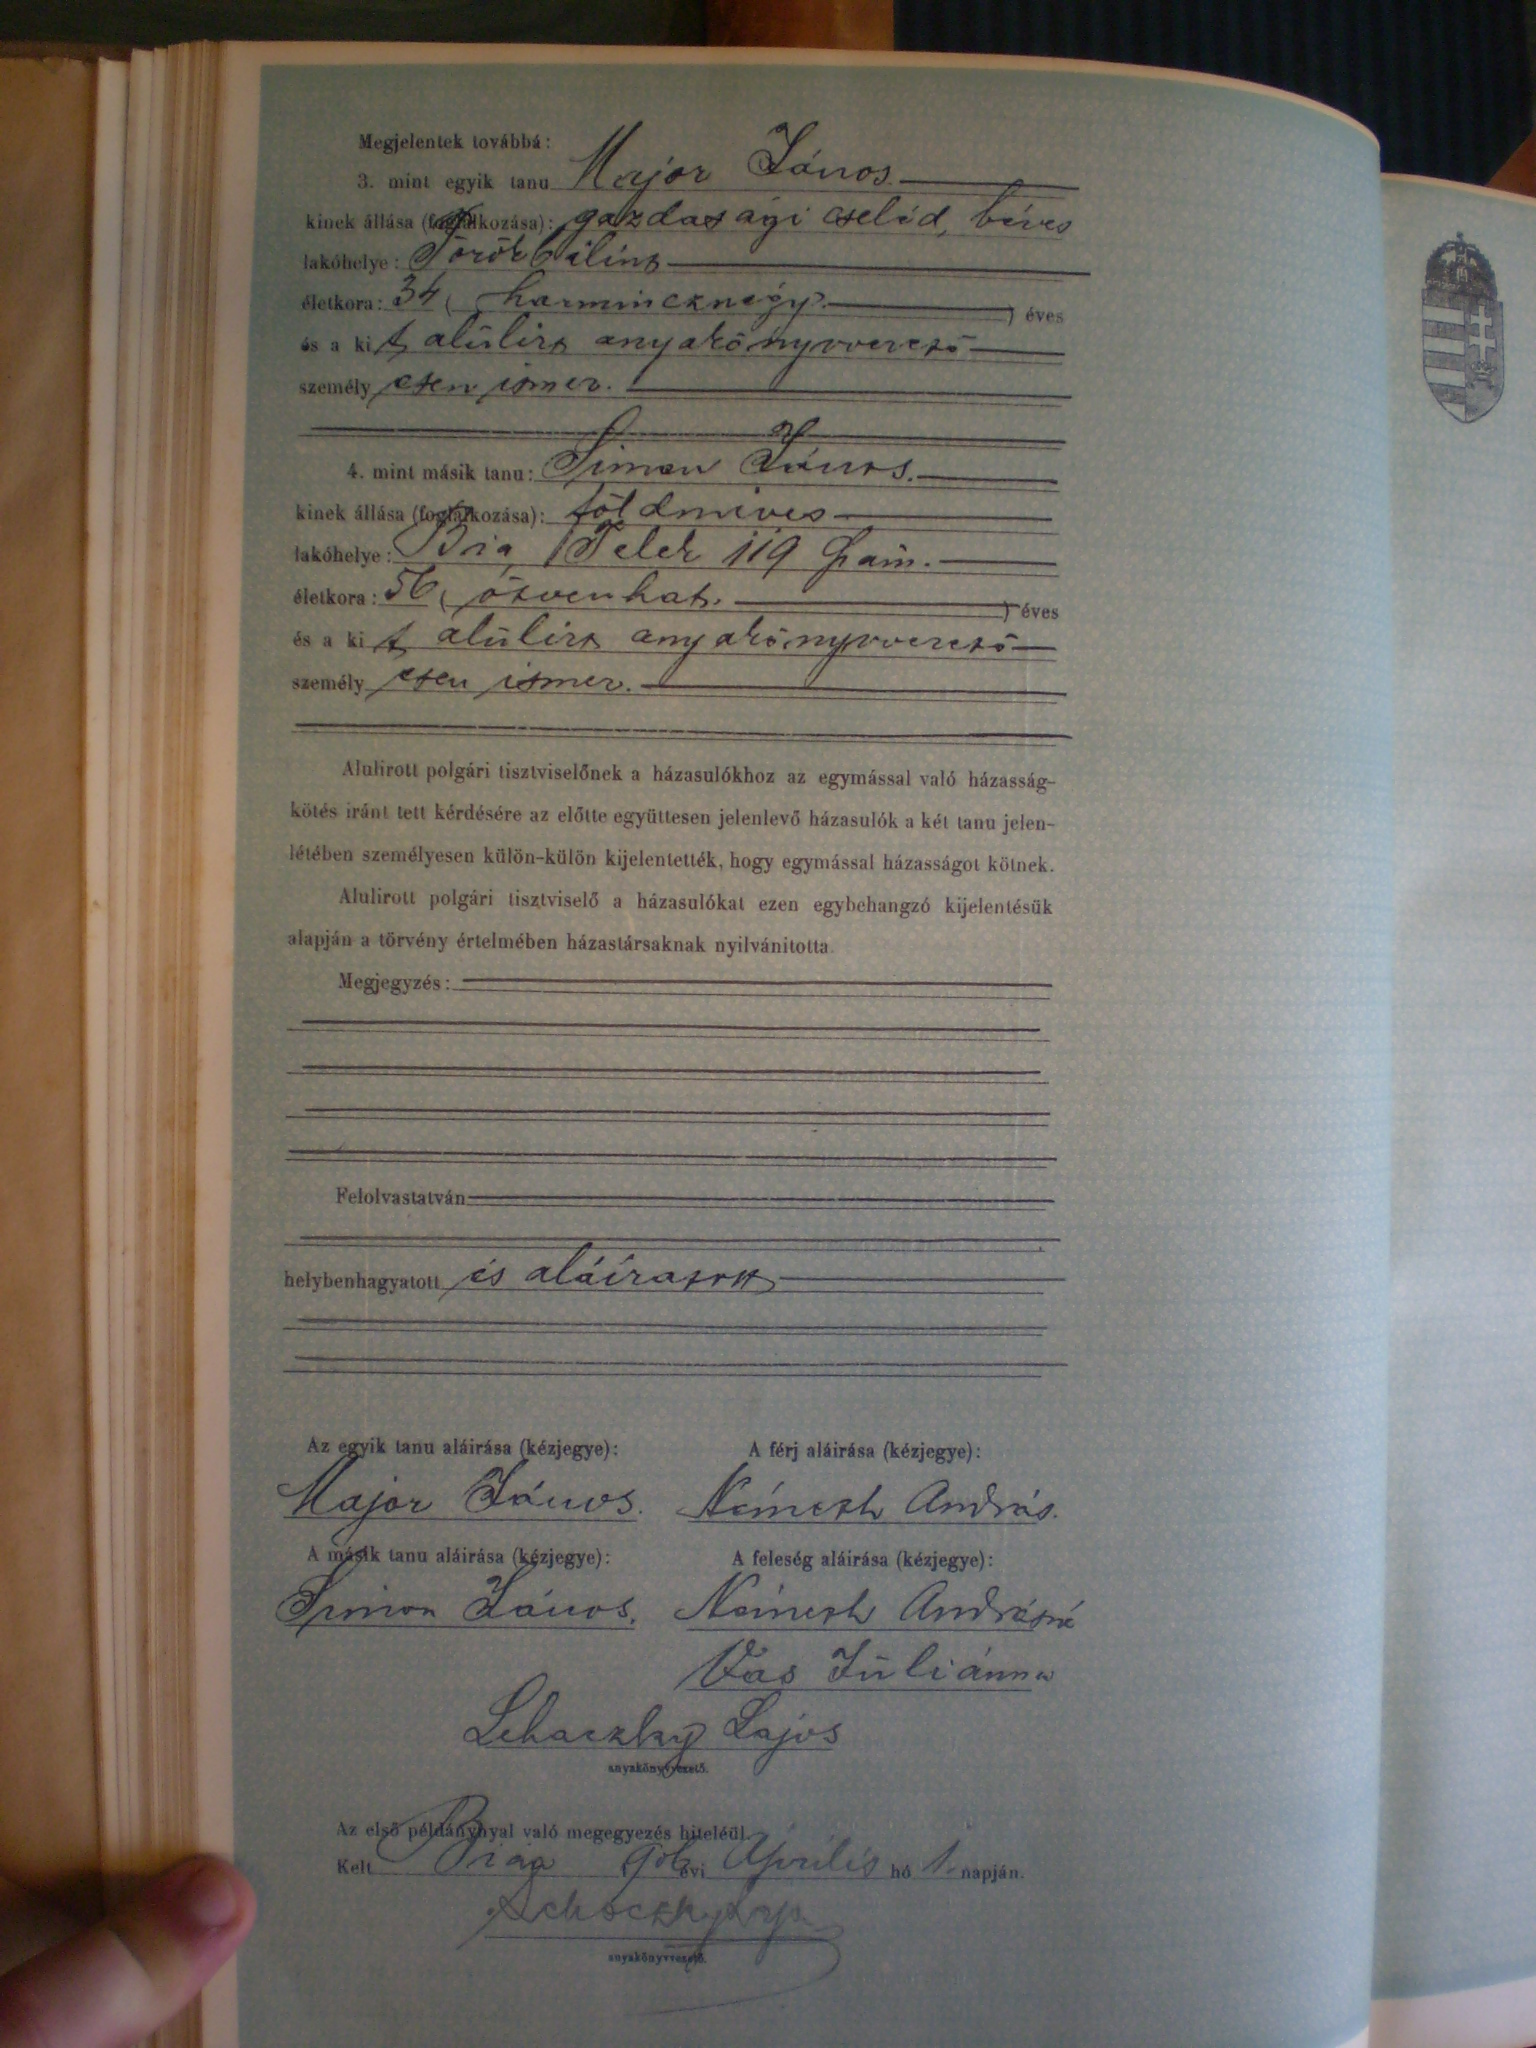 Megjelentek továbbá:
3. mint egyik tanu Major János
kinek állása (foglalkozása): gazdasági cseléd, béres
lakóhelye: Törökbálint
életkora: 34 ( harmincznégy. ) éves
és a ki t, alúlirt anyakönyvvezető
személy esen ismer.
4. mint másik tanu: Simon János.
kinek állása (foglalkozása): földmives
lakóhelye: Bia, Telek 119 szám.
életkora: 56 ( ötvenhat. ) éves
és a ki t alúlirt anyakönyvvezető
személy esen ismer.
Alulirott polgári tisztviselőnek a házasulókhoz az egymással való házasság-
kötés iránt tett kérdésére az előtte együttesen jelenlevő házasulók a két tanu jelen-
létében személyesen külön-külön kijelentették, hogy egymással házasságot kötnek.
Alulirott polgári tisztviselő a házasulókat ezen egybehangzó kijelentésük
alapján a törvény értelmében házastársaknak nyilvánitotta.
Megjegyzés:
Felolvastatván
helybenhagyatott és aláíratott
Az egyik tanu aláirása (kézjegye): A férj aláirása (kézjegye):
Major János. Németh András.
A másik tanu aláirása (kézjegye): A feleség aláirása (kézjegye):
Simon János. Németh Andrásné
Vas Júliánna
Lajos
anyakönyvvezető.
Az első példánynyal való megegyezés hiteléül.
Kelt Bia évi Április hó 1. napján.
anyakönyvvezető.